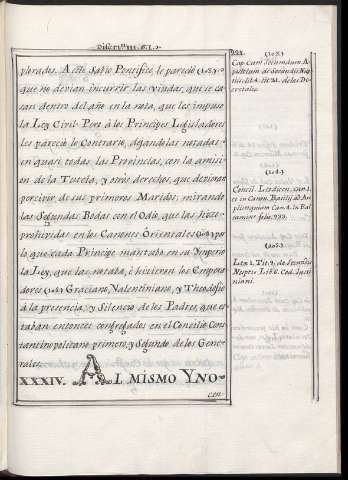 Discurso III. §. I.
plorados. A este Sabio Pontifice, le pareció (103)
que no devian incurrir las viudas, que se ca
san dentro del año en la nota, que les impuso
la Ley Civil. Pero à los Principes Legisladores
les pareció lo Contrario, dejandolas notadas
en quasi todas las Provincias, con la amisi
on de la Tutela, y otros derechos, que devieron
percivir de sus primeros Maridos, mirando
las Segundas Bodas con el Odio, que las hizo
prohividas en los Canones Orientales (104) por
lo que cada Principe mantubo en su Ymperio
la Ley, que las notaba, è hicieron los Empera
dores (105) Graciano, Valentiniano, y Theodosio
á la presencia, y Silencio de los Padres, que es
taban entonces congregados en el Concilio Cons
tantinopolitano primero, y Segundo de los Gene-
rales.
XXXIV. AL MISMO YNO-
cen
(103)
Cap. Cum Secundum A-
postolum de Secundis Nup
tiis. lib. 4. tit. 21. de las De
cretales.
(104)
Concil. Laodicen. can. 1.
et in Canon. Basilij ad Am
philoquium Can. 4. in Bal
samine folio 939.
(105)
Lex 2. Tit. 9. de Secundis
Nuptis Lib. 5. Cod. Justi
niani.